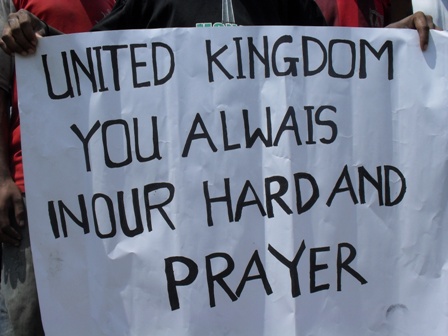 UNITED KINGDOM
YOU ALWAIS
INOUR HARDAND
PRAYER